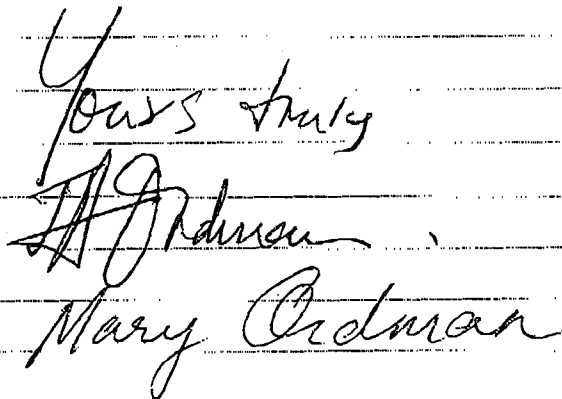 Yours truly
Ordman
Mary Ordman